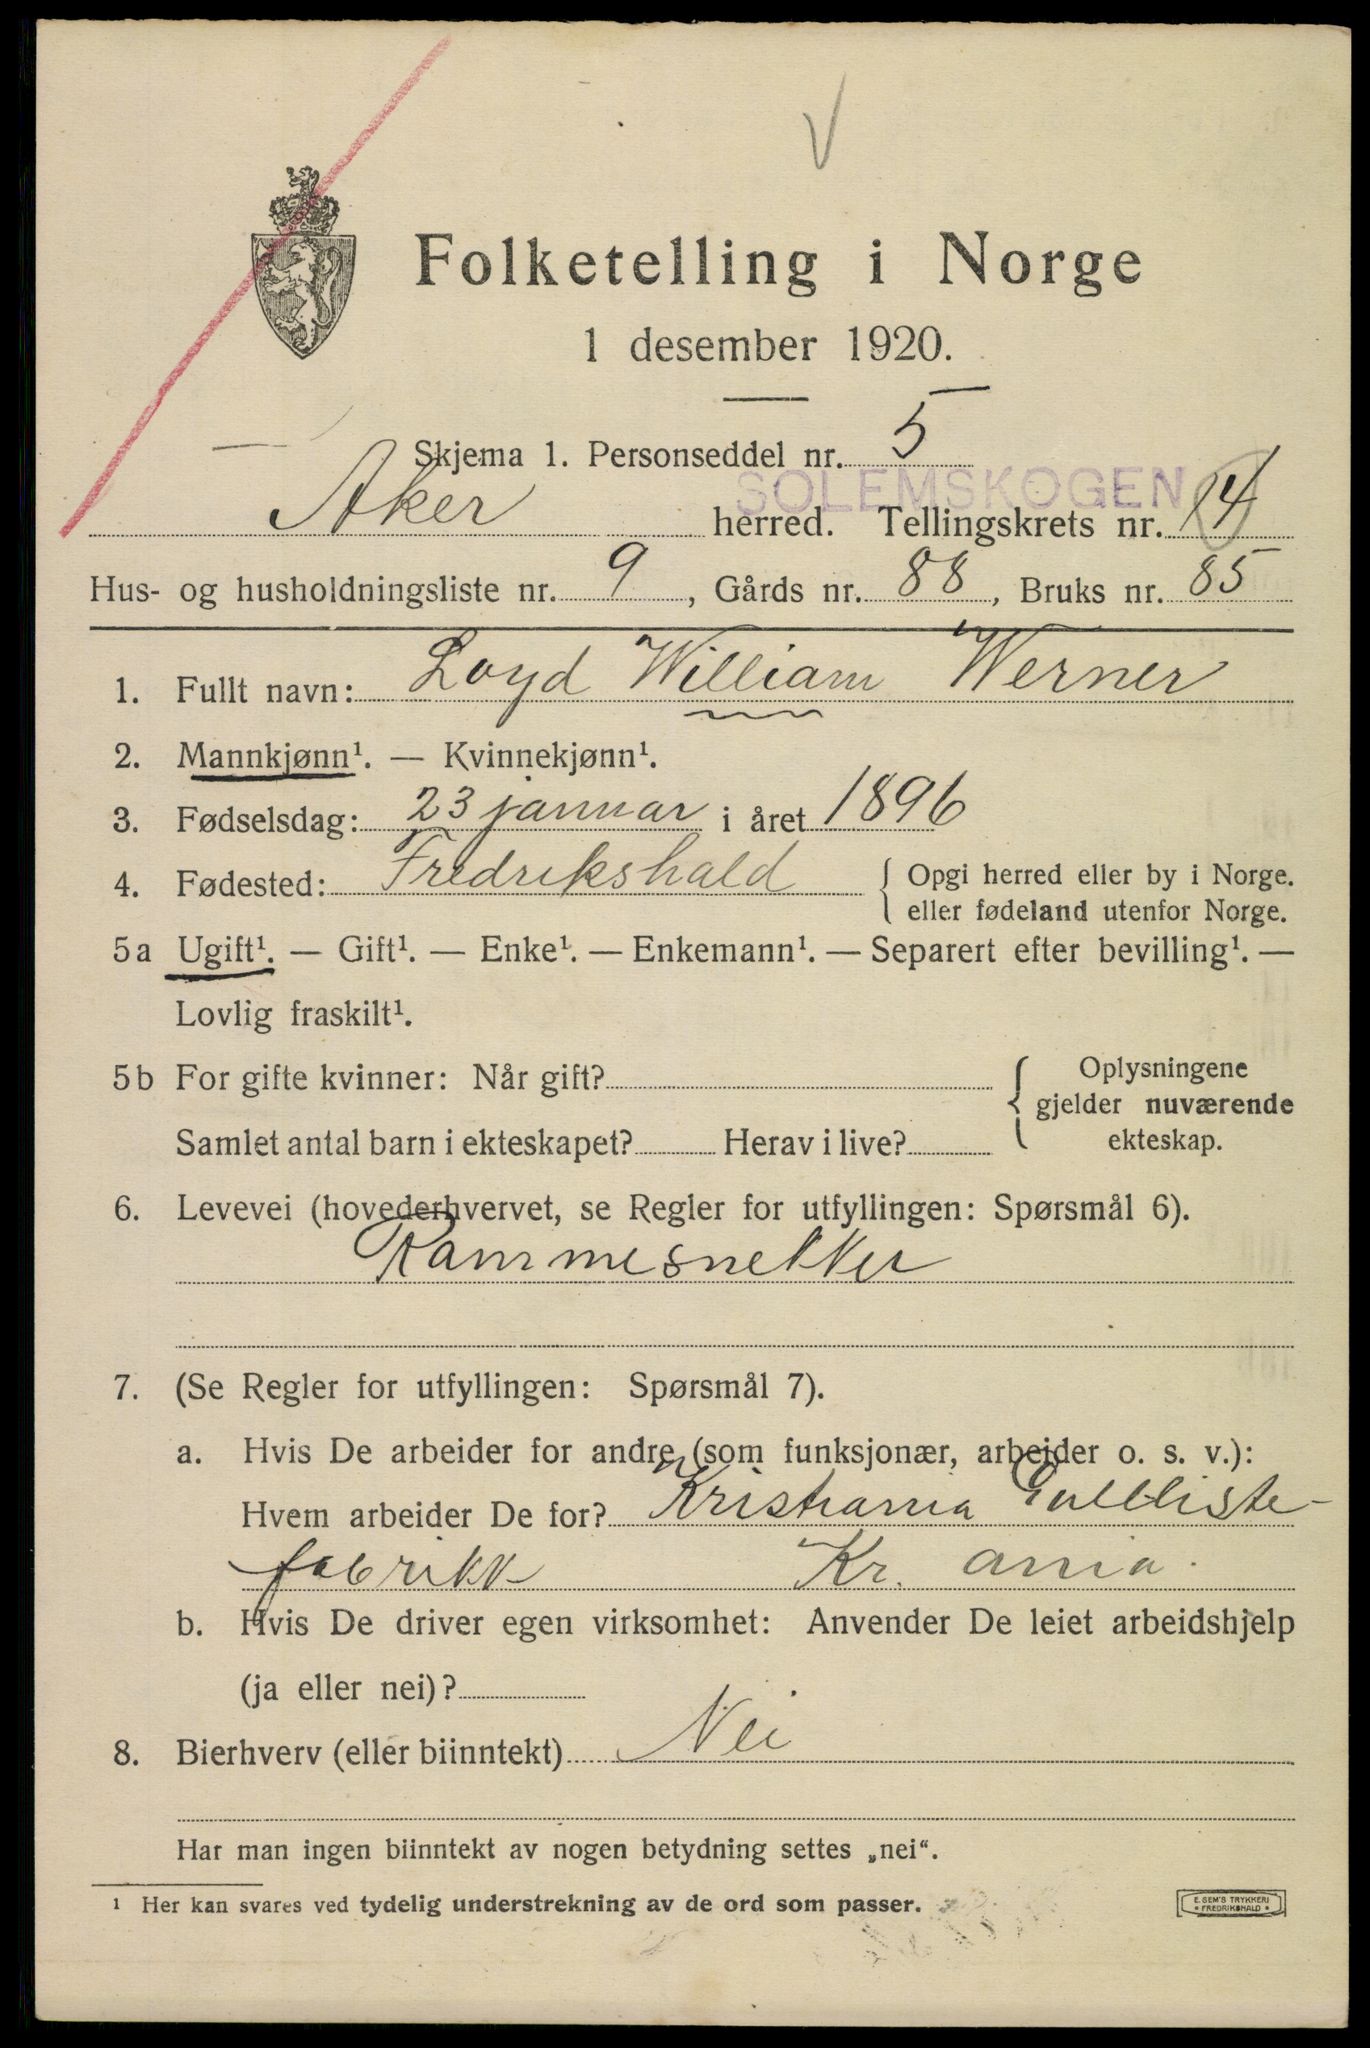 V
Folketelling i Norge
1 desember 1920.
Skjema 1. Personseddel nr. 5
SOLEMSKOGEN
Aker herred. Tellingskrets nr. 14
Hus- og husholdningsliste nr. 9, Gårds nr. 88, Bruks nr. 85
1. Fullt navn: Loyd William Werner
2. Mannkjønn¹. — Kvinnekjønn¹.
3. Fødselsdag: 23 januar i året 1896
4. Fødested: Fredrikshald { Opgi herred eller by i Norge.
eller fødeland utenfor Norge.
5a Ugift¹. — Gift¹. — Enke¹. — Enkemann¹. — Separert efter bevilling¹. —
Lovlig fraskilt¹.
5b For gifte kvinner: Når gift? { Oplysningene
gjelder nuværende
Samlet antal barn i ekteskapet? Herav i live? ekteskap.
6. Levevei (hovederhvervet, se Regler for utfyllingen: Spørsmål 6).
Rammesnekker
7. (Se Regler for utfyllingen: Spørsmål 7).
a. Hvis De arbeider for andre (som funksjonær, arbeider o. s. v.):
Hvem arbeider De for? Kristiania Gullliste-
fabrikk Kr. ania.
b. Hvis De driver egen virksomhet: Anvender De leiet arbeidshjelp
(ja eller nei)?
8. Bierhverv (eller biinntekt) Nei
Har man ingen biinntekt av nogen betydning settes „nei“.
¹ Her kan svares ved tydelig understrekning av de ord som passer.
E. SEM'S TRYKKERI
• FREDRIKSHALD •